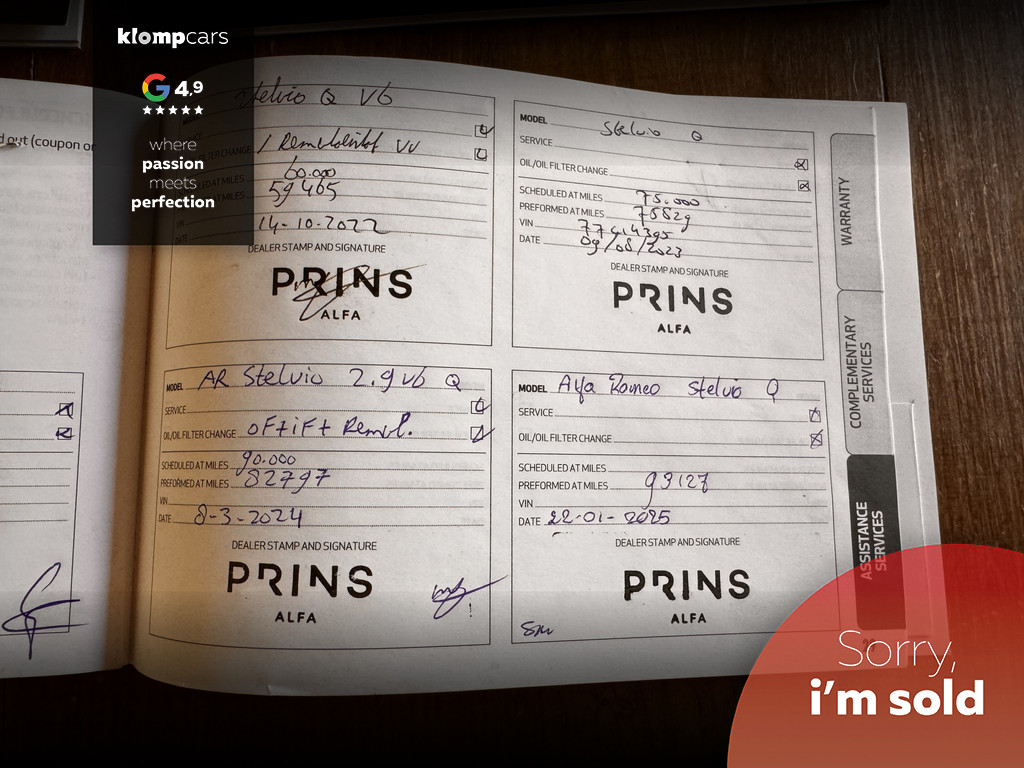 klompcars
G 4,9
where
passion
meets
perfection
d out (coupon or
Stelvio Q V6
TER CHANGE / Remvloeistof VV
60.000
59465
14-10-2022
DEALER STAMP AND SIGNATURE
PRINS
ALFA
MODEL Stelvio Q
SERVICE
OIL/OIL FILTER CHANGE
SCHEDULED AT MILES 75.000
PREFORMED AT MILES 75529
VIN 77414395
DATE 09/08/2023
DEALER STAMP AND SIGNATURE
PRINS
ALFA
MODEL AR Stelvio 2.9 V6 Q
SERVICE
OIL/OIL FILTER CHANGE OF+iF+ Remvl.
SCHEDULED AT MILES 90.000
PREFORMED AT MILES 82797
VIN
DATE 8-3-2024
DEALER STAMP AND SIGNATURE
PRINS
ALFA
MODEL Alfa Romeo Stelvio Q
SERVICE
OIL/OIL FILTER CHANGE
SCHEDULED AT MILES
PREFORMED AT MILES 93127
VIN
DATE 22-01-2025
DEALER STAMP AND SIGNATURE
PRINS
ALFA
WARRANTY
COMPLEMENTARY
SERVICES
ASSISTANCE
SERVICES
Sorry,
i'm sold